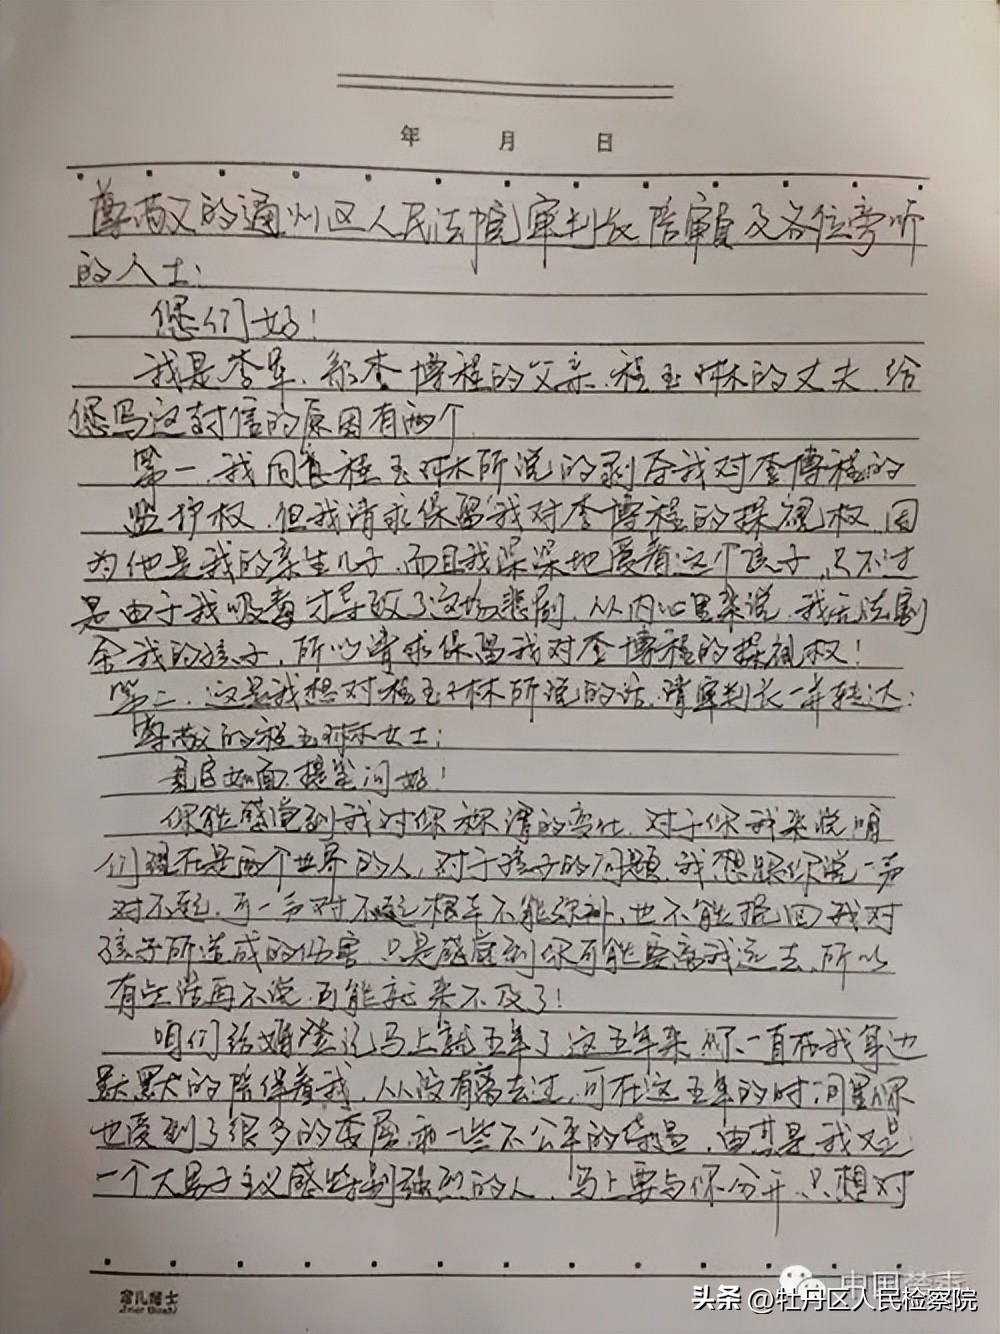 年 月 日
尊敬的通州区人民法院审判长陪审员及各位旁听
的人士:
您们好!
我是李军、系李博程的父亲、程玉琳的丈夫,给
您写这封信的原因有两个
第一、我同意程玉琳所说的剥夺我对李博程的
监护权,但我请求保留我对李博程的探视权,因
为他是我的亲生儿子,而且我深深地爱着这个孩子,只不过
是由于我吸毒才导致了这场悲剧,从内心里来说,我无法割
舍我的孩子,所以请求保留我对李博程的探视权!
第二、这是我想对程玉琳所说的话,请审判长一并转达:
尊敬的程玉琳女士:
见信如面,提笔问好!
你能感觉到我对你称谓的变化,对于你我来说咱
们现在是两个世界的人,对于孩子的问题,我想跟你说一声
对不起,可一声对不起根本不能弥补,也不能挽回我对
孩子所造成的伤害,只是感觉到你可能要离我远去,所以
有些话再不说,可能就来不及了!
咱们结婚登记马上就五年了,这五年来你一直在我身边
默默的陪伴着我,从没有离去过,可在这五年的时间里你
也受到了很多的委屈和一些不公平的待遇,由其是我又是
一个大男子主义感特别强烈的人,马上要与你分开,只想对
中国禁毒
头条 @牡丹区人民检察院